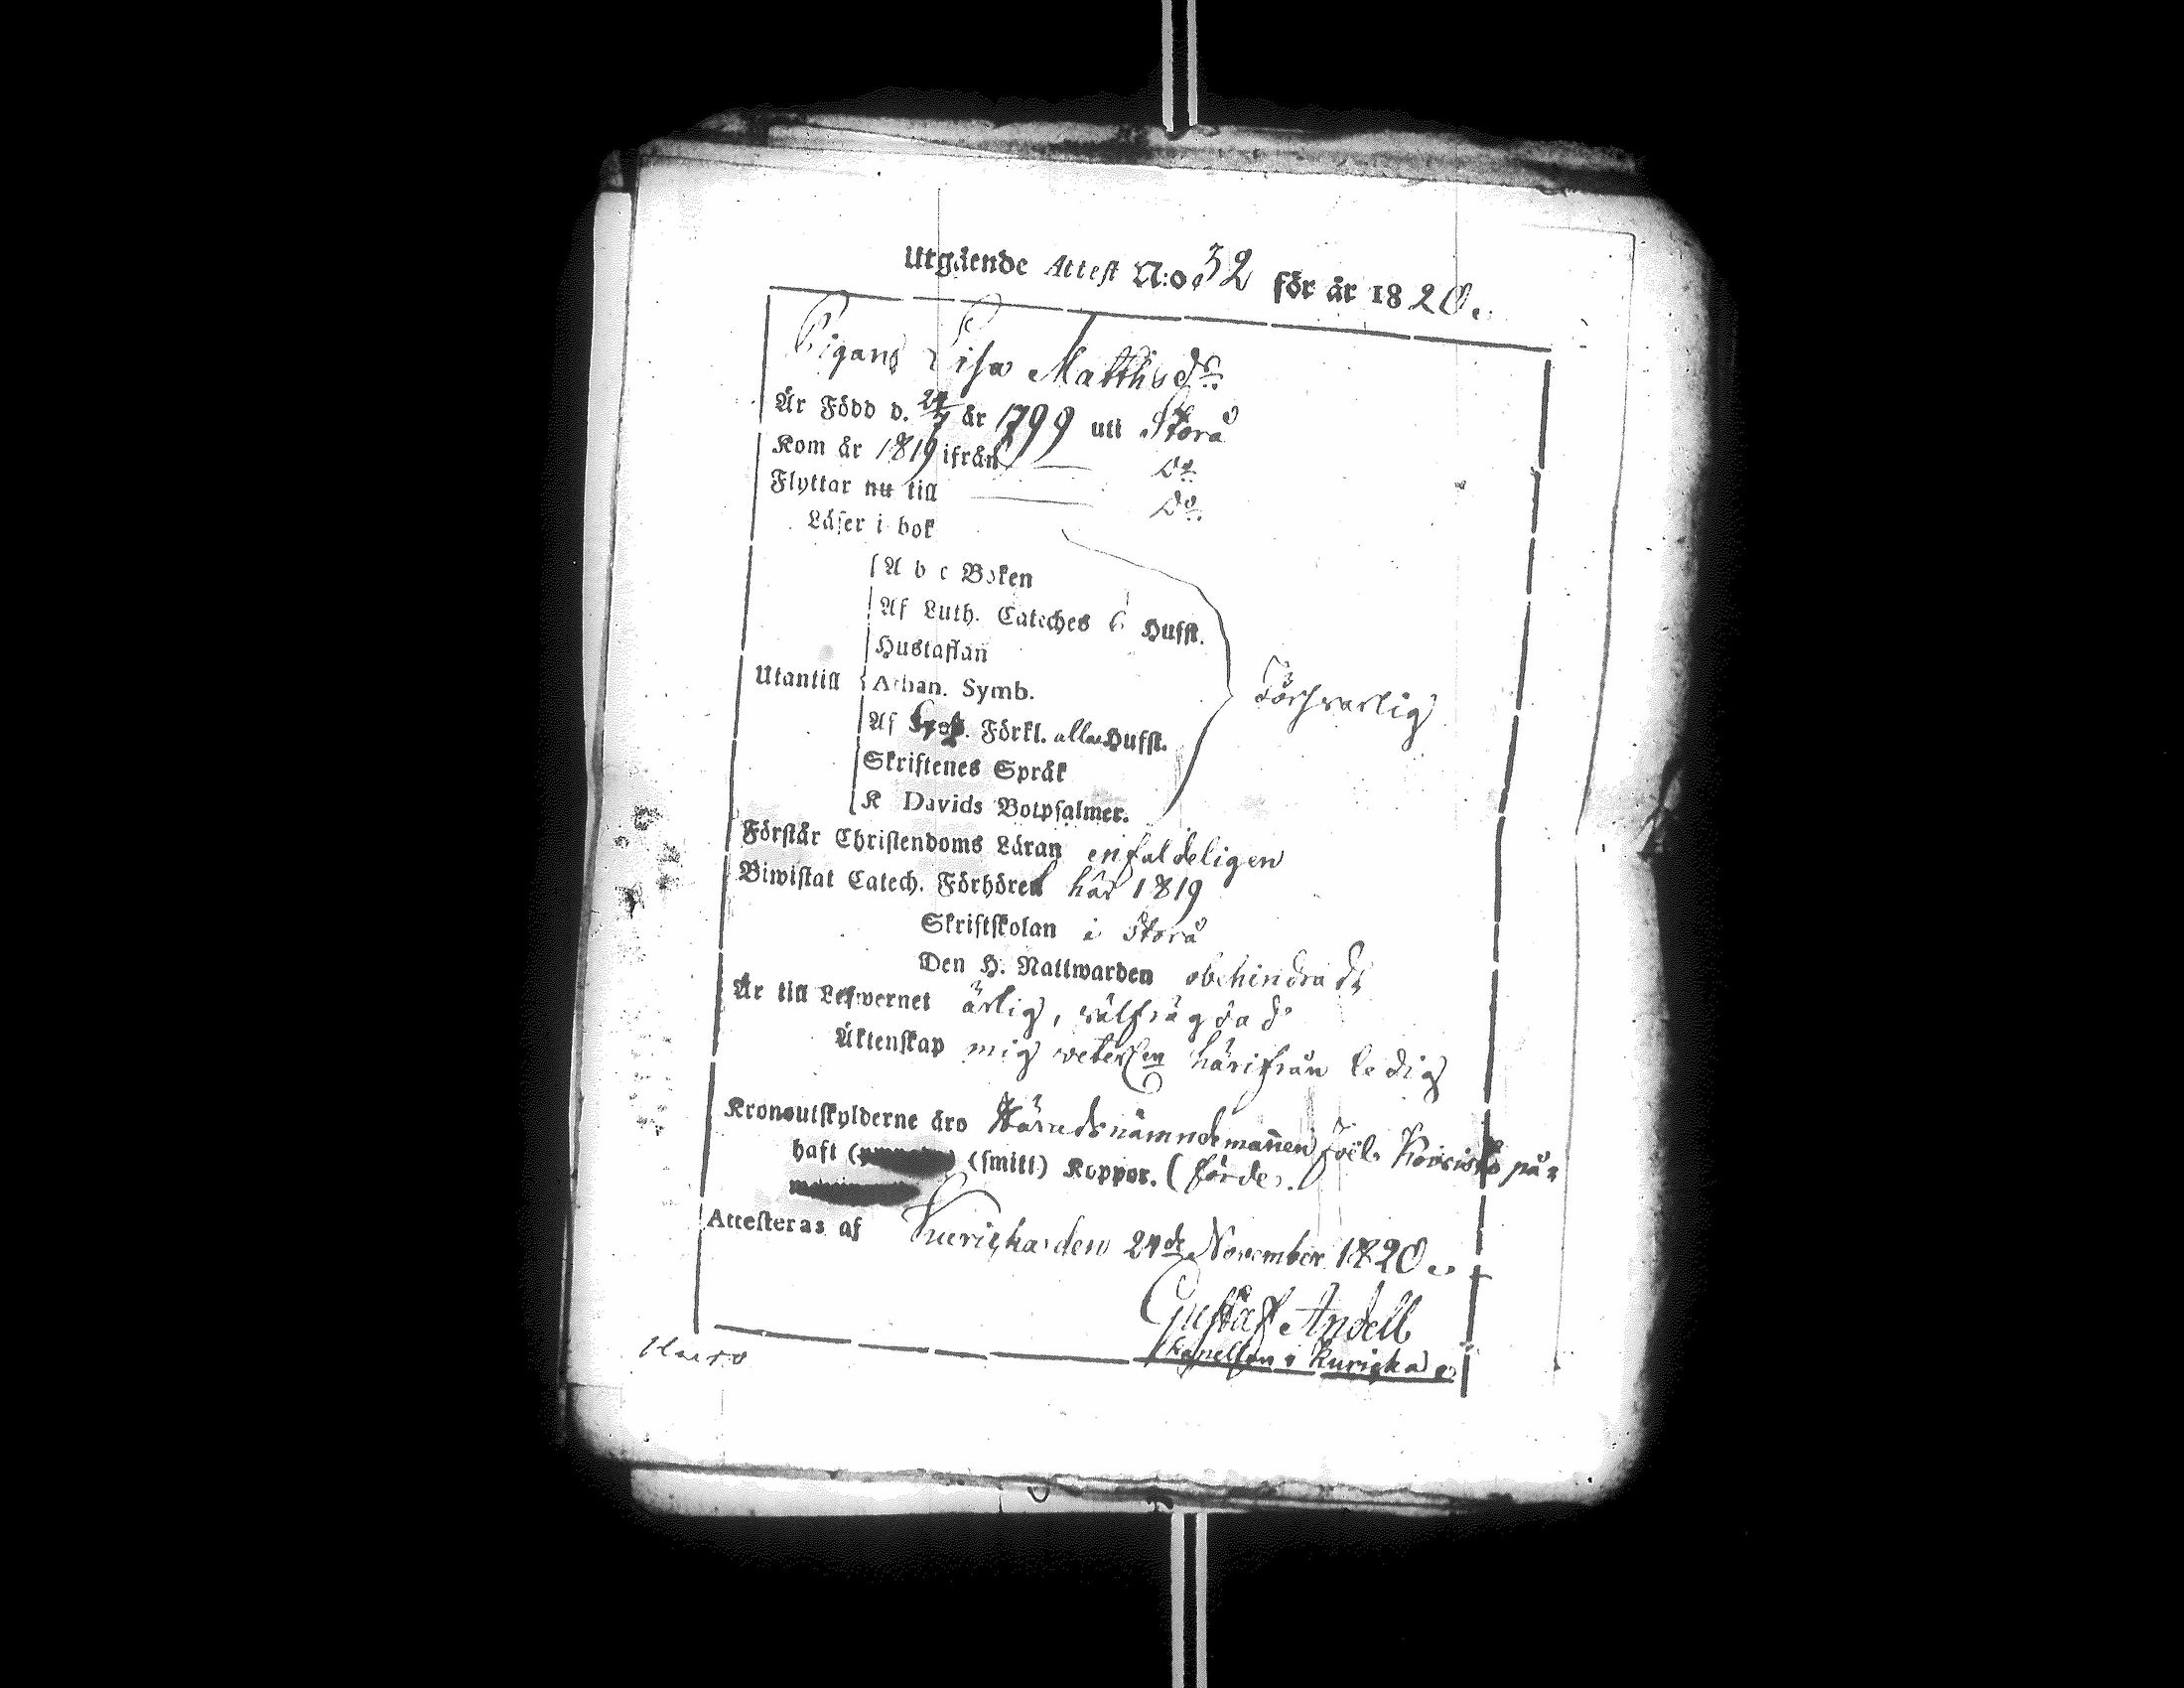 Utgående Attest N:o 32 för år 1820.
Pigan Lisa Matthsdr.
Är Född d. 24/7 år 1799 uti Storå
Kom år 1819 ifrån Do.
Flyttar nu till Do.
Läser i bok
A b c Boken
Af Luth. Cateches 6 Hufst.
Hustaflan
Utantill Athan. Symb. Försvarlig
Af Förkl. alla Hufst.
Skriftenes Språk
K Davids Botpsalmer.
Förstår Christendoms Läran enfaldeligen
Biwistat Catech. Förhören här 1819
Skriftskolan i Storå
Den H. Nattwarden obehindradt
Är till Lefwernet ärlig, välfrägdad
Äktenskap mig veterligen härifrån ledig
Kronoutskylderne äro Häradsnämndemannen Joel på-
haft (smitt) Koppor. (förde.
Attesteras af Kurikka den 24de November 1820.
Gustaf Andell
Kapellan i Kurikka